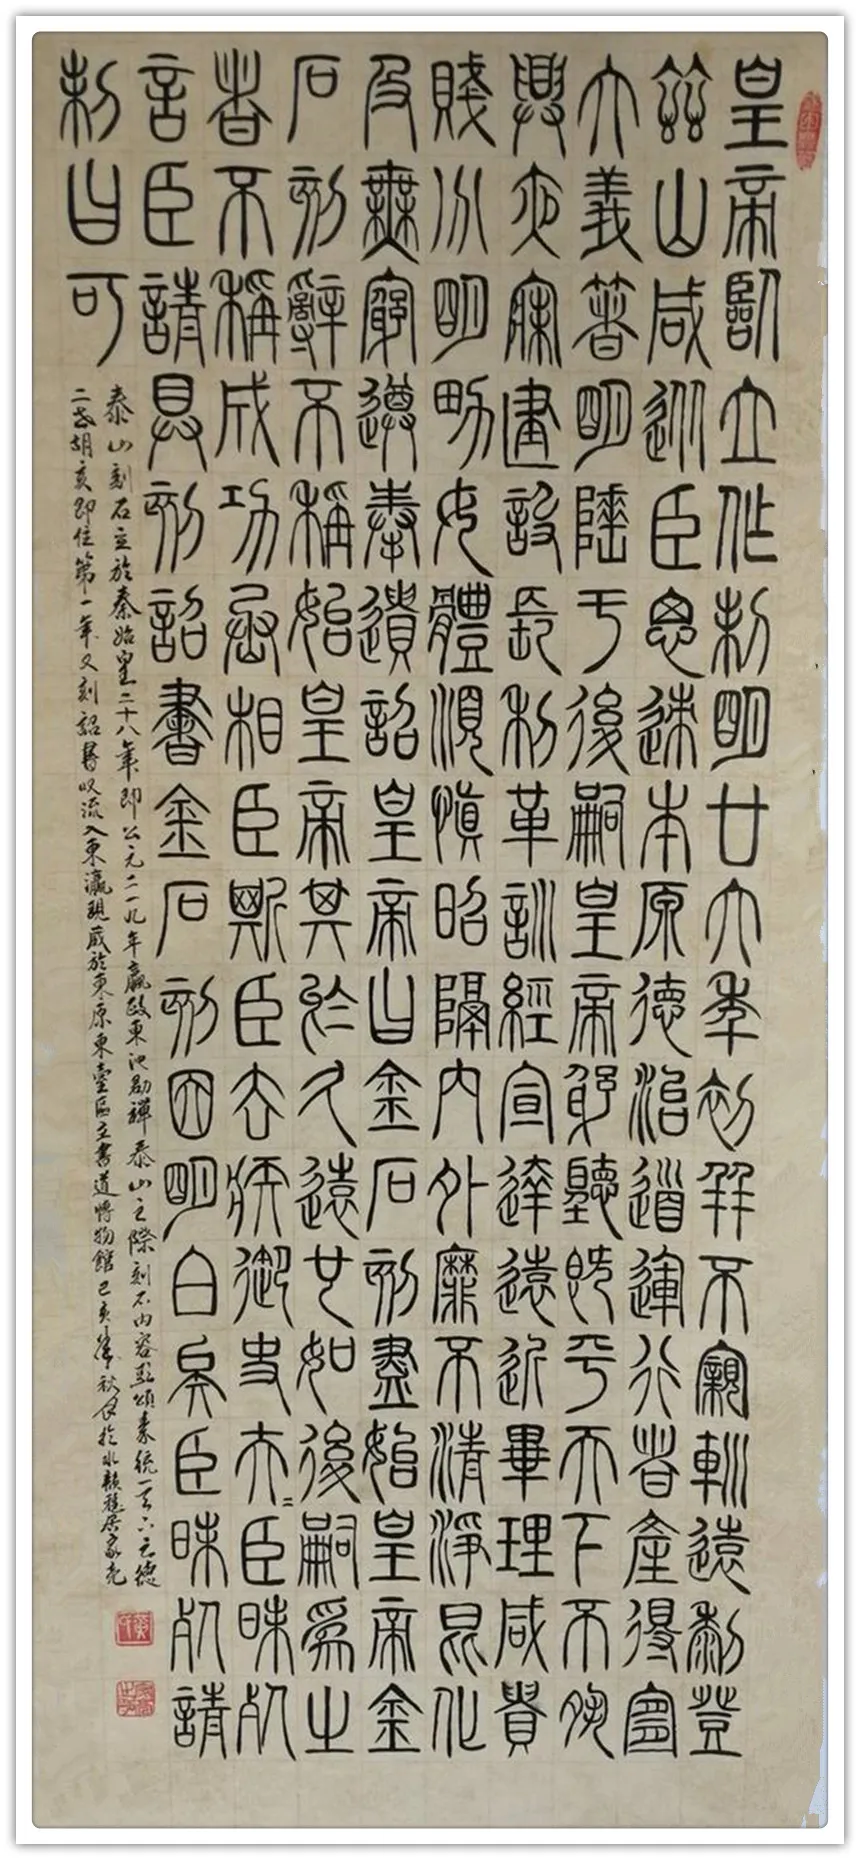 皇帝臨立作制明廿六年初并不親䡅遠黎登
茲山咸巡臣思迹本原德治道運行者產得宜
大義著明陲于後嗣皇帝躬聽既平天下不懈
興夜寐建設長利革訓經宣達遠近畢理咸貴
賤分明男女體順慎昭隔內外靡不清淨昆化
及無窮遵奉遺詔皇帝曰金石刻盡始皇帝金
石刻辭不稱始皇帝其於久遠也如後嗣為之
者不稱成功丞相臣斯臣去疾御史夫=臣昧死
言臣請具刻詔書金石刻因明白矣臣昧死請
制曰可
泰山刻石立於秦始皇二十八年即公元二一九年嬴政東巡封禪泰山之際刻石內容歌頌秦統一天下之德
二世胡亥即位第一年又刻詔書以流入東瀛現藏於東京東臺區立書道博物館己亥年秋月於水韻